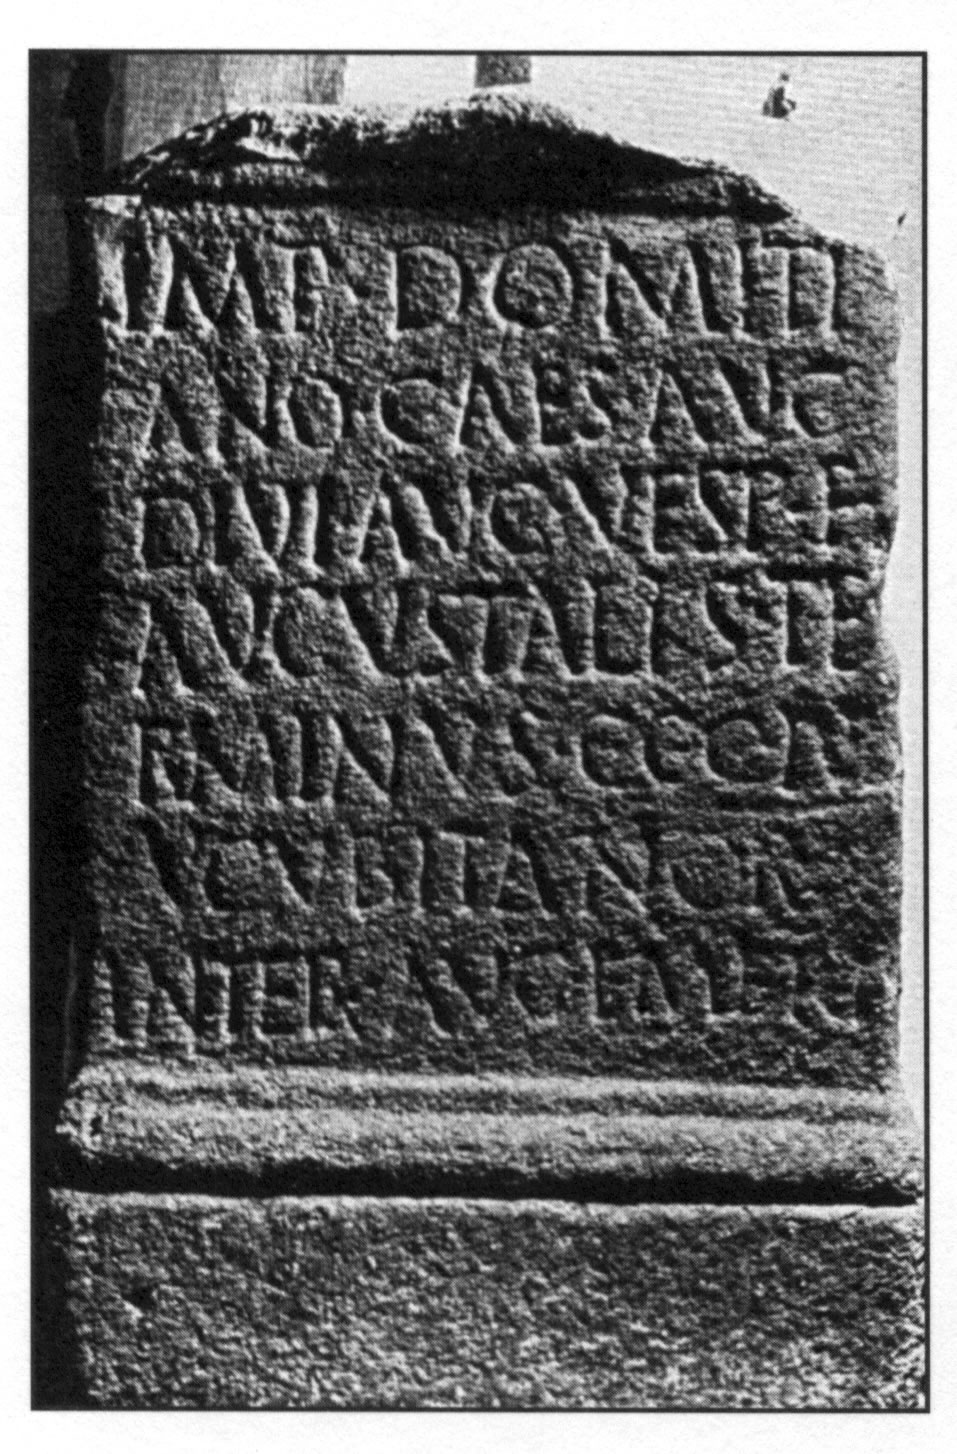 IMP DOMITI
ANO CAES AVG
DIVI AVG VESP F
AVGVSTALIS TE
RMINVS C C C
VCVBITANOR
INTER AVG EMER